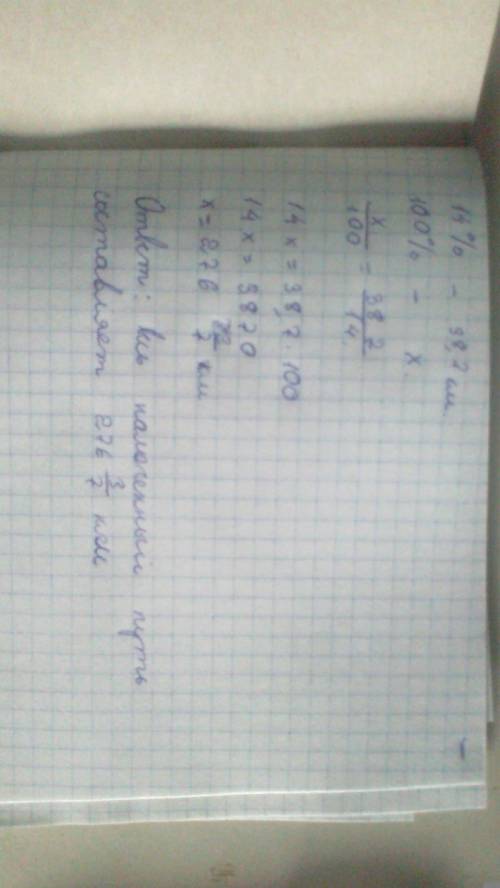 14% - 38,7 км.
100% - x.
x/100 = 38,7/14.
14x = 38,7 · 100
14x = 3870
x = 276 3/7 км
Ответ: весь намеченный путь
составляет 276 3/7 км